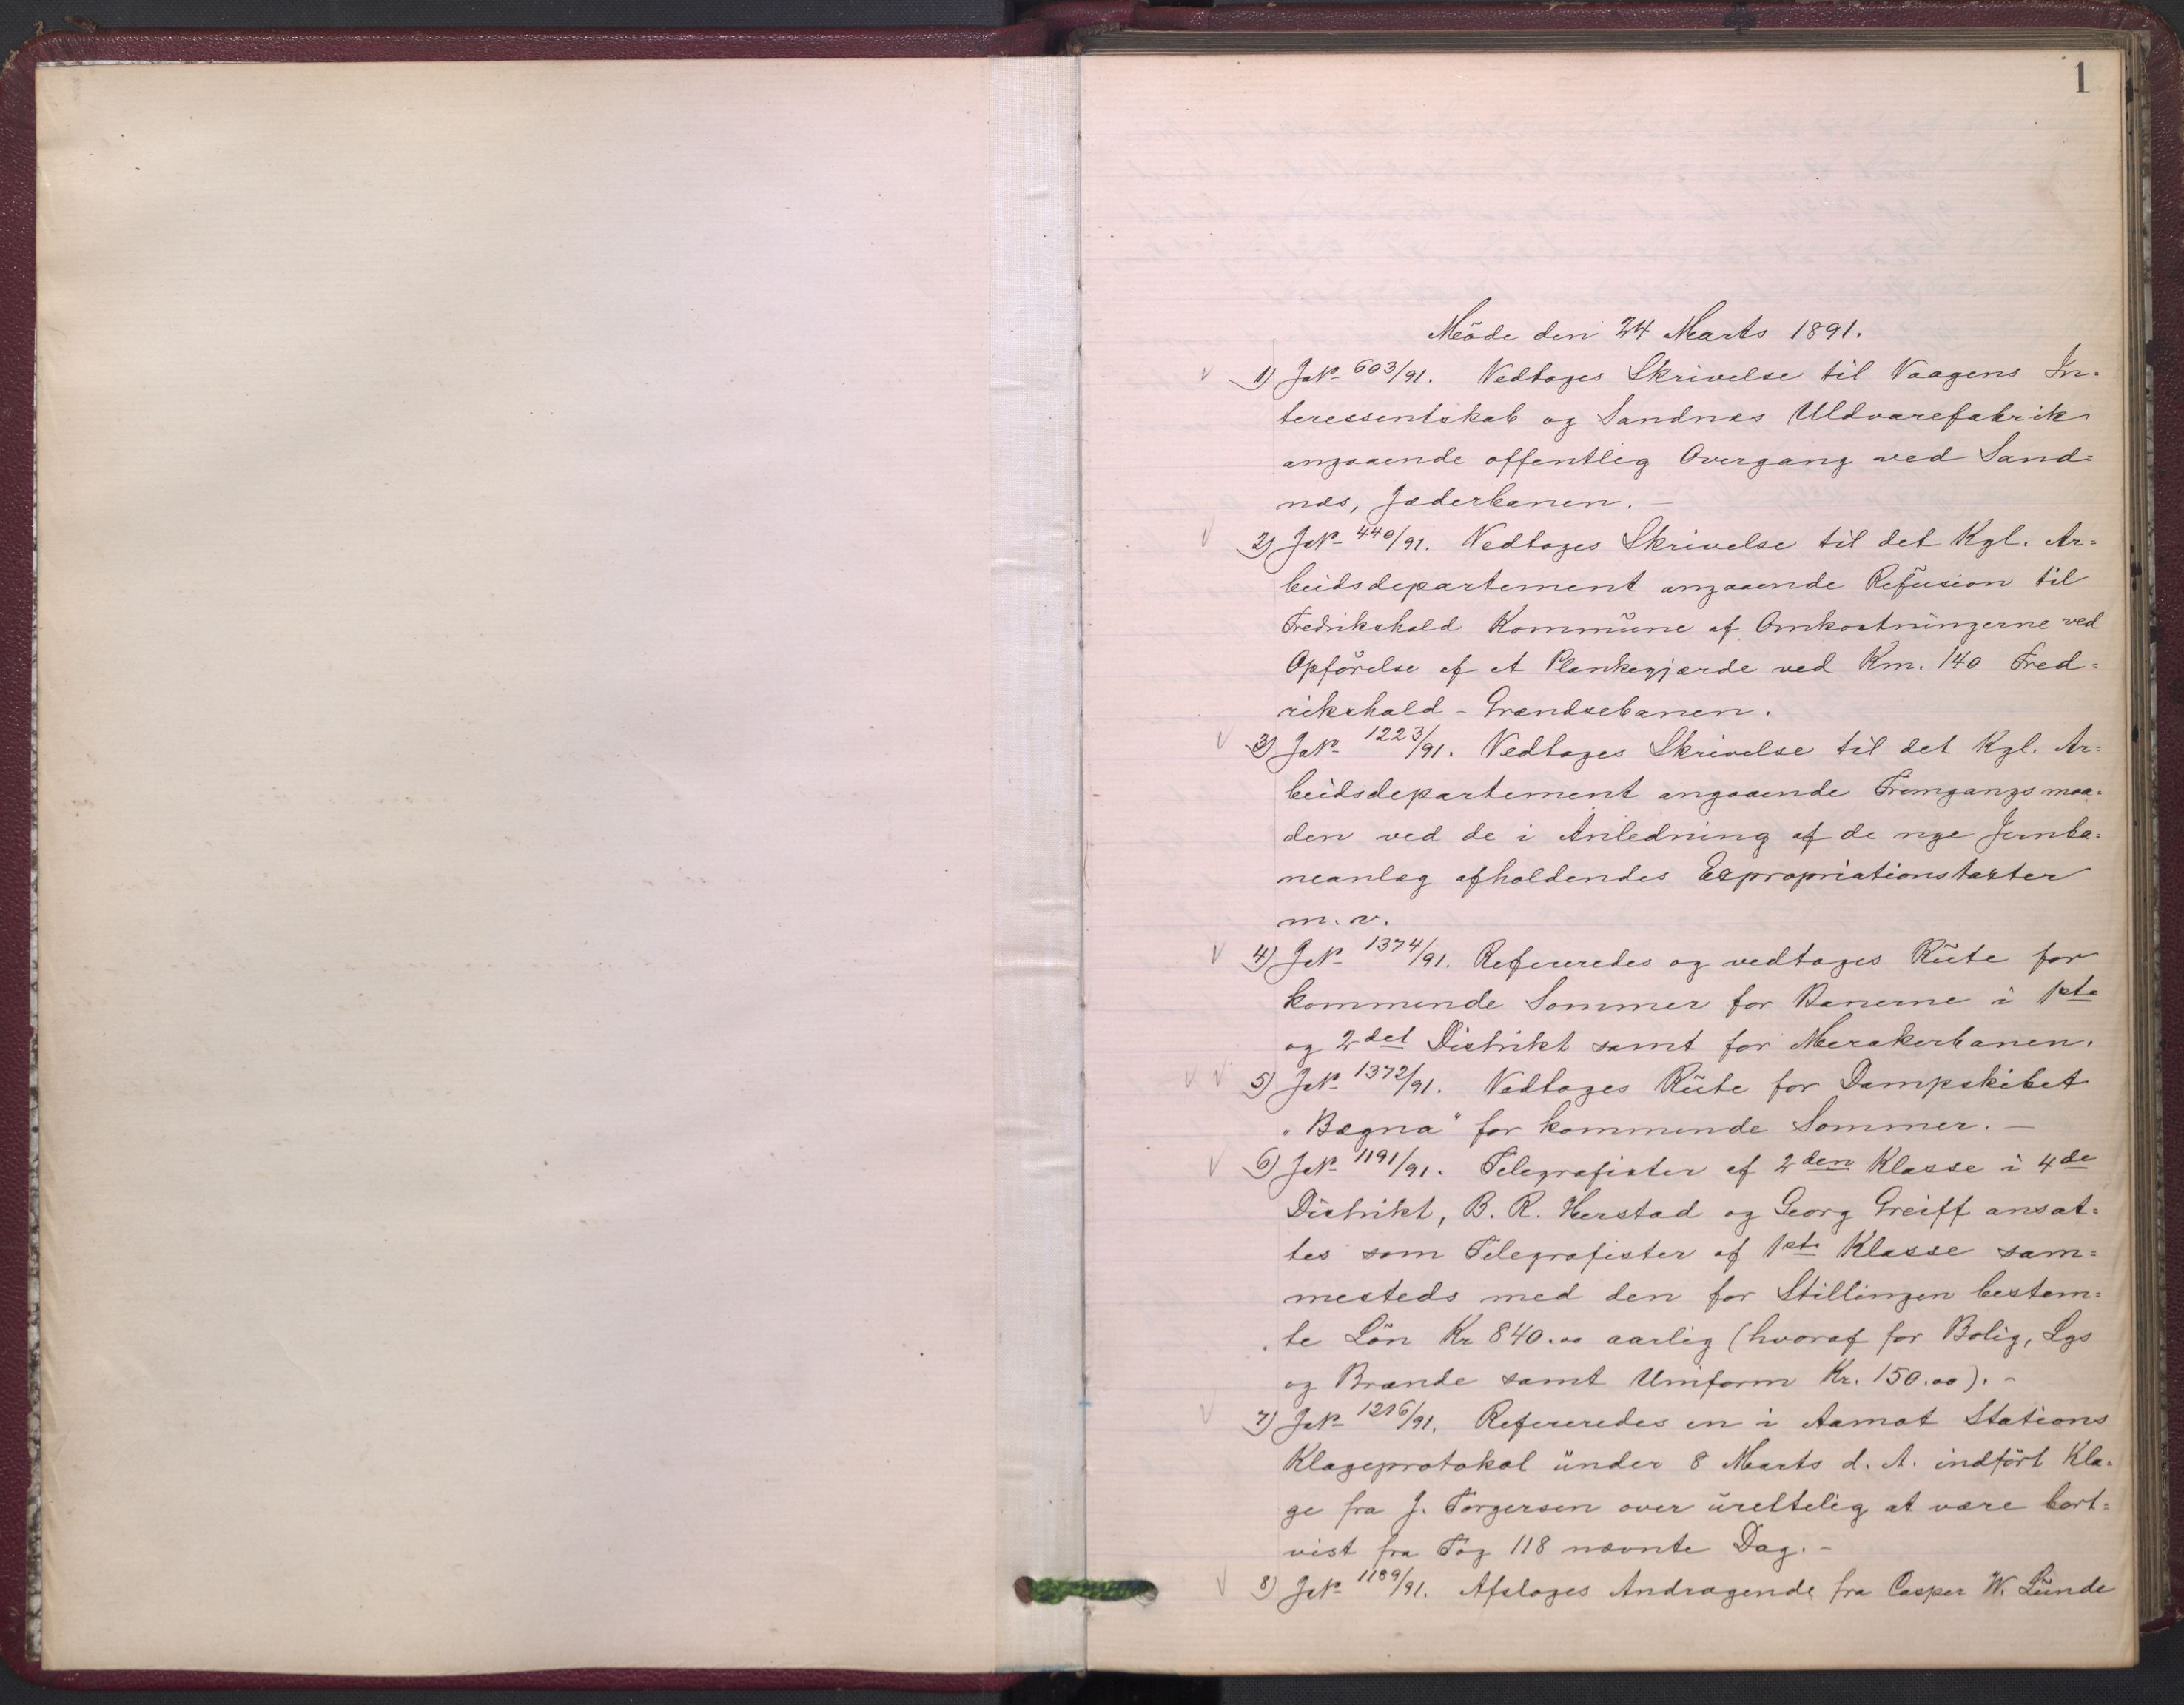 1
Møde den 24 Marts 1891.
1) JNo 603/91. Vedtoges Skrivelse til Vaagens In=
teressentskab og Sandnes Uldvarefabrik
angaaende offentlig Overgang ved Sand=
nes, Jæderbanen. —
2) JNo 440/91. Vedtoges Skrivelse til det Kgl. Ar=
beidsdepartement angaaende Refusion til
Fredrikshald Kommune af Omkostningerne ved
Opførelse af et Plankegjærde ved Km. 140 Fred=
rikshald - Grændsebanen.
3) JNo 1223/91. Vedtoges Skrivelse til det Kgl. Ar=
beidsdepartement angaaende Fremgangsmaa=
den ved de i Anledning af de nye Jernba=
neanlæg afholdendes Expropriationstaxter
m. v.
4) JNo 1374/91. Refereredes og vedtoges Rute for
kommende Sommer for Banerne i 1ste
og 2det Distrikt samt for Merakerbanen.
5) JNo 1372/91. Vedtoges Rute for Dampskibet
"Bægna" for kommende Sommer. —
6) JNo 1191/91. Telegrafister af 2den Klasse i 4de
Distrikt, B. R. Herstad og Georg Greiff ansat=
tes som Telegrafister af 1ste Klasse sam=
mesteds med den for Stillingen bestem=
te Løn Kr 840.00 aarlig (hvoraf for Bolig, Lys
og Brænde samt Uniform Kr. 150.00). -
7) JNo 1216/91. Refereredes en i Aamot Stations
Klageprotokol under 8 Marts d. A. indført Kla=
ge fra J. Torgersen over urettelig at være bort=
vist fra Tog 118 nævnte Dag. -
8) JNo 1189/91. Afsloges Andragende fra Casper W. Lunde